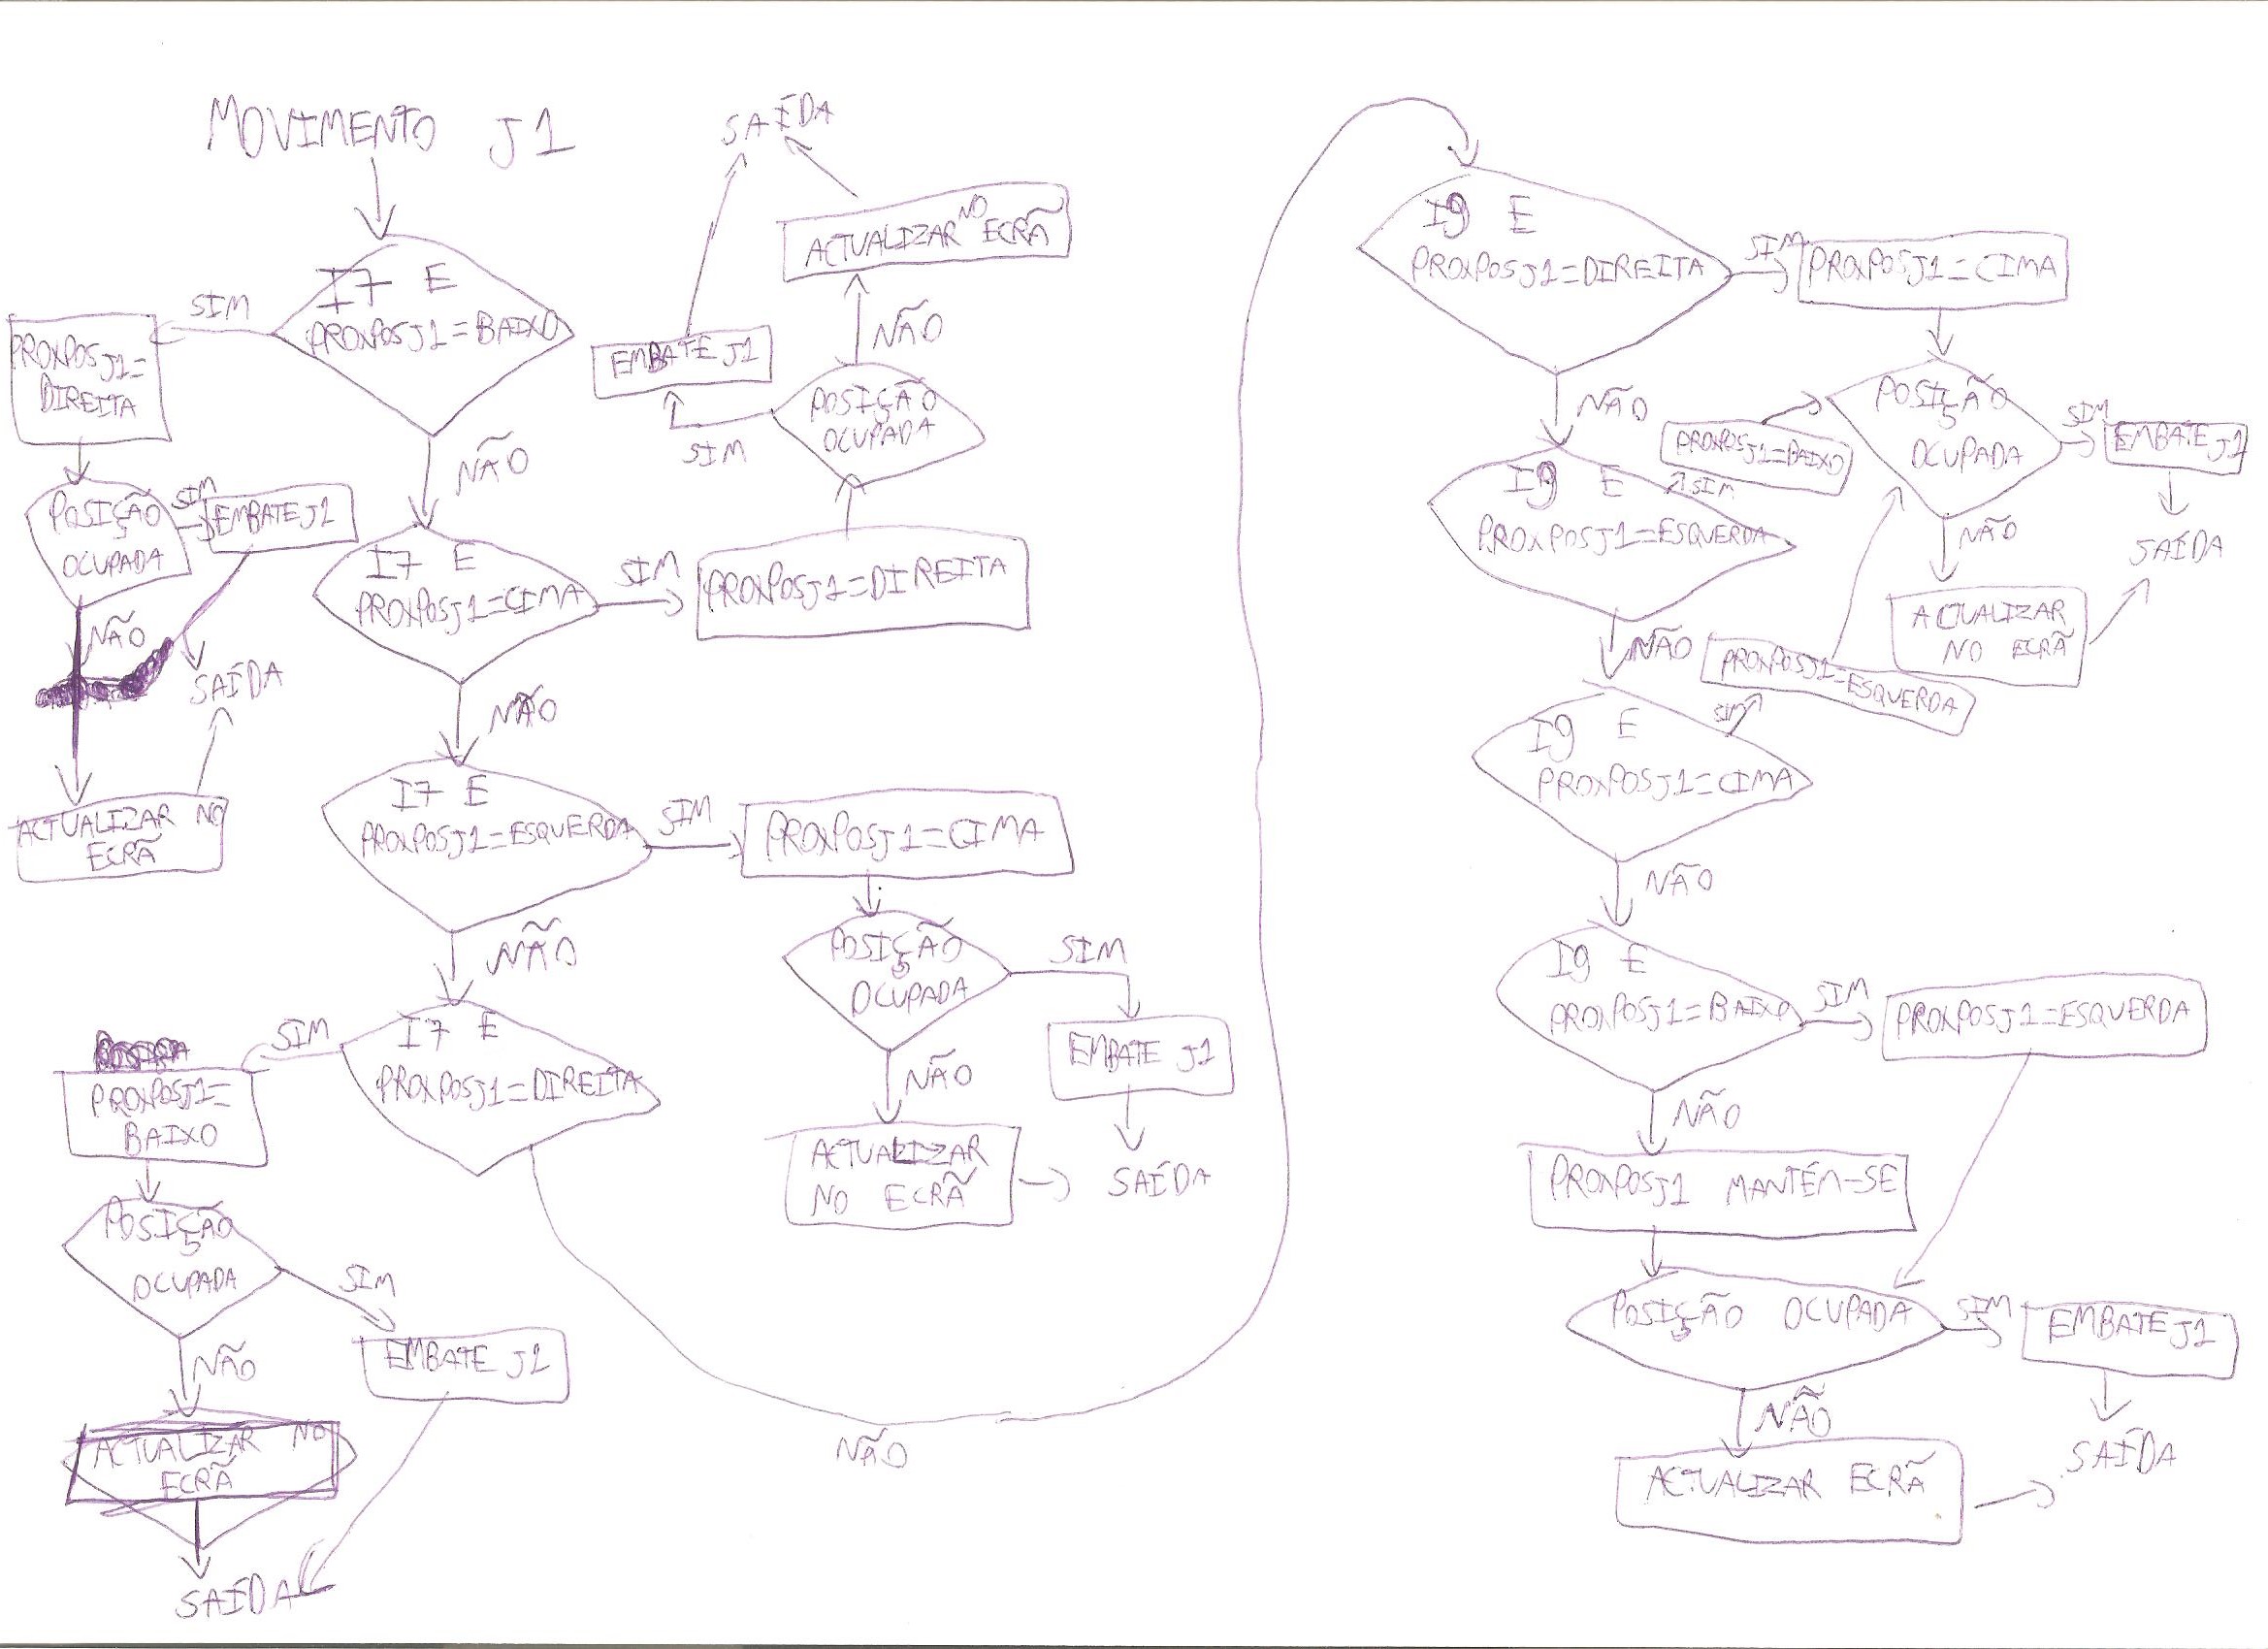 MOVIMENTO J1
I7 E
PROXPOSJ1=BAIXO
SIM
PROXPOSJ1=
DIREITA
POSIÇÃO
OCUPADA
SIM
EMBATE J1
NÃO
SAÍDA
ACTUALIZAR NO
ECRÃ
NÃO
I7 E
PROXPOSJ1=CIMA
SIM
PROXPOSJ1=DIREITA
POSIÇÃO
OCUPADA
SIM
EMBATE J1
NÃO
ACTUALIZAR NO ECRÃ
SAÍDA
NÃO
I7 E
PROXPOSJ1=ESQUERDA
SIM
PROXPOSJ1=CIMA
POSIÇÃO
OCUPADA
SIM
EMBATE J1
NÃO
ACTUALIZAR
NO ECRÃ
SAÍDA
NÃO
I7 E
PROXPOSJ1=DIREITA
SIM
PROXPOSJ1=
BAIXO
POSIÇÃO
OCUPADA
SIM
EMBATE J1
NÃO
ACTUALIZAR NO
ECRÃ
SAÍDA
NÃO
I9 E
PROXPOSJ1=DIREITA
SIM
PROXPOSJ1=CIMA
POSIÇÃO
OCUPADA
SIM
EMBATE J1
SAÍDA
NÃO
ACTUALIZAR
NO ECRÃ
NÃO
I9 E
PROXPOSJ1=ESQUERDA
SIM
PROXPOSJ1=BAIXO
NÃO
I9 E
PROXPOSJ1=CIMA
SIM
PROXPOSJ1=ESQUERDA
NÃO
I9 E
PROXPOSJ1=BAIXO
SIM
PROXPOSJ1=ESQUERDA
NÃO
PROXPOSJ1 MANTÉM-SE
POSIÇÃO OCUPADA
SIM
EMBATE J1
SAÍDA
NÃO
ACTUALIZAR ECRÃ